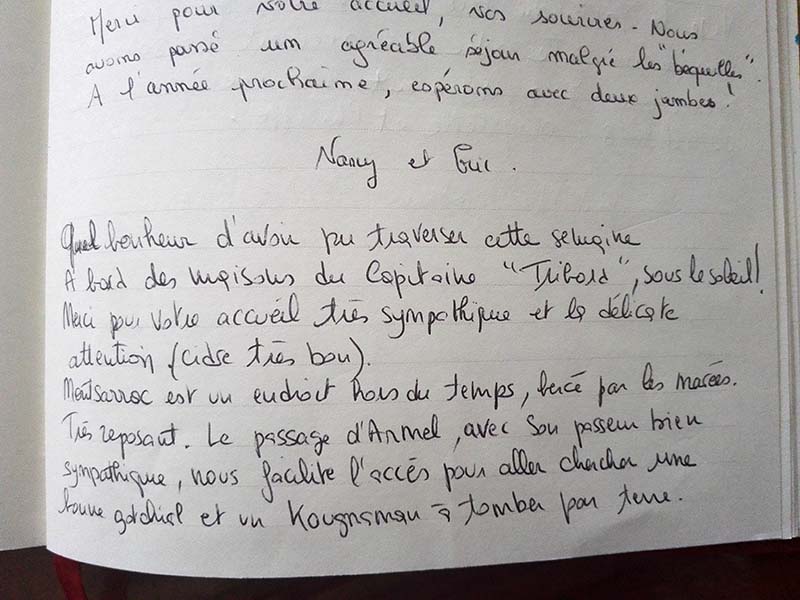 Merci pour votre accueil, vos sourires - Nous
avons passé un agréable séjour malgré les "béquilles".
A l'année prochaine, espérons avec deux jambes !
Nancy et Eric.
Quel bonheur d'avoir pu traverser cette semaine
A bord des maisons du Capitaine "Tribord", sous le soleil !
Merci pour votre accueil très sympathique et la délicate
attention (cidre très bon).
Montsarroc est un endroit hors du temps, bercé par les marées.
Très reposant. Le passage d'Anmel, avec son passeur bien
sympathique, nous facilite l'accès pour aller chercher une
bonne gotchial et un Kougnaman à tomber par terre.